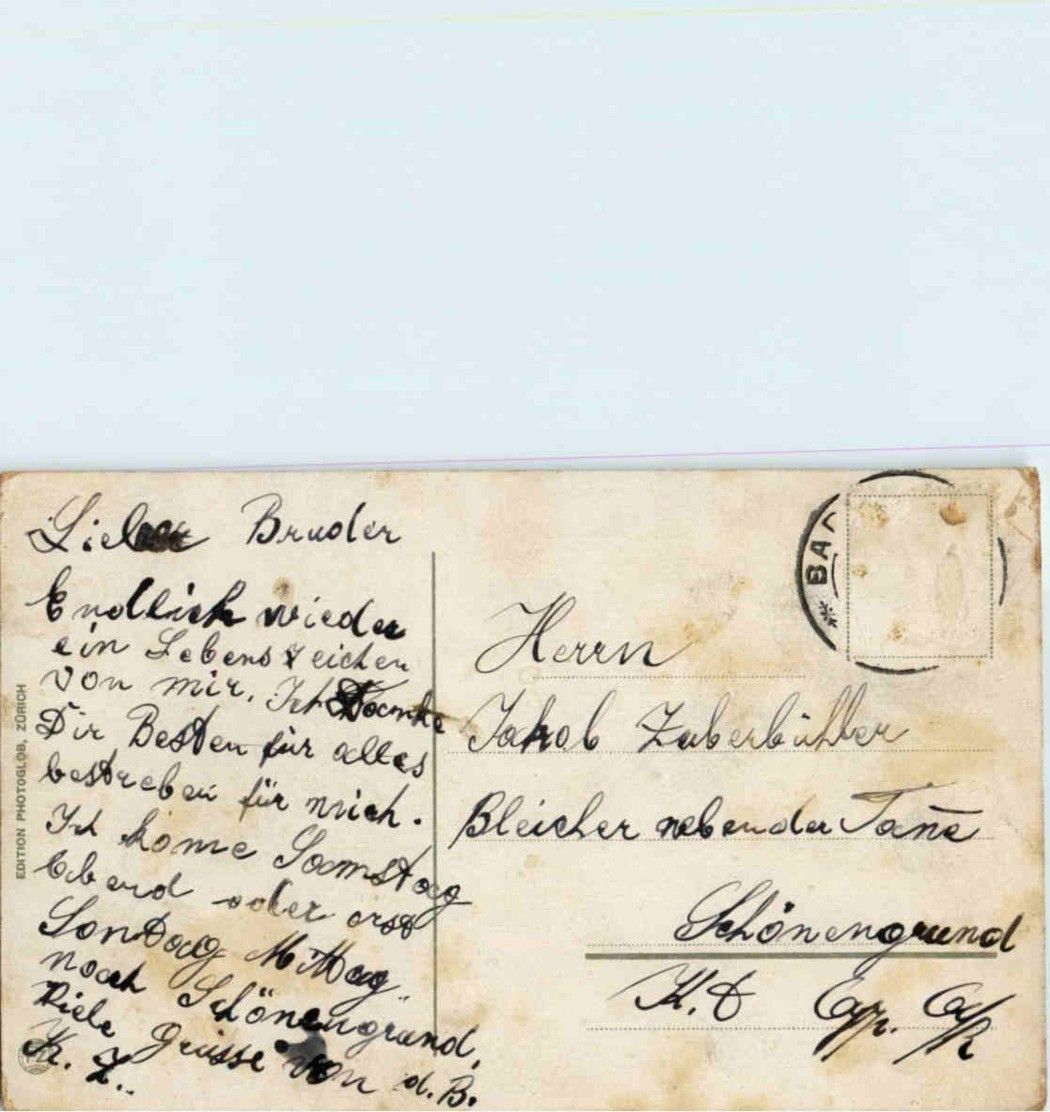 Lieber Bruder
Endlich wieder
ein Lebenszeichen
von mir. Ich Danke
Dir Besten für alles
bestreben für mich.
Ich kome Samstag
Abend oder erst
Sontag Mittag
nach Schönengrund,
Viele Grüsse von d. B.
K. Z..
EDITION PHOTOGLOB, ZÜRICH
BA
Herrn
Jakob Zuberbühler
Bleicher neben der Tane
Schönengrund
Kt App. A/R